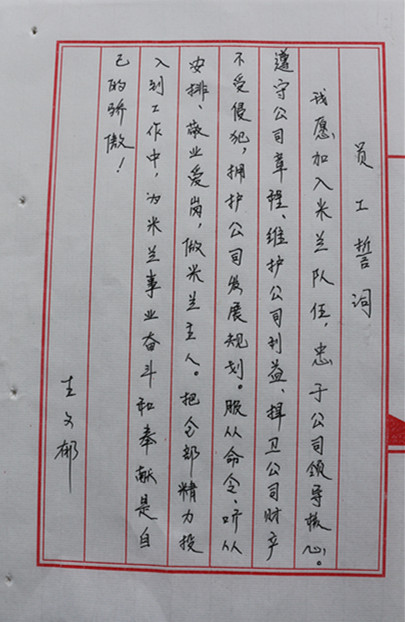 员工誓词
我愿加入米兰队伍，忠于公司领导核心。
遵守公司章程、维护公司利益、捍卫公司财产
不受侵犯，拥护公司发展规划。服从命令、听从
安排、敬业爱岗，做米兰主人。把全部精力投
入到工作中，为米兰事业奋斗和奉献是自
己的骄傲！
王文郁